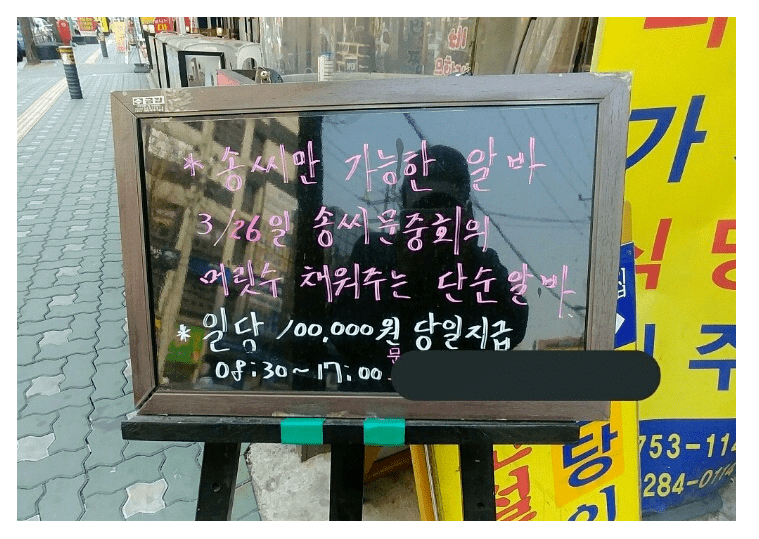 *송씨만 가능한 알바
3/26일 송씨문중회의
머릿수 채워주는 단순알바
*일당 100,000원 당일지급
08:30~17:00
문
가
식당
주
당
753-114
284-0114